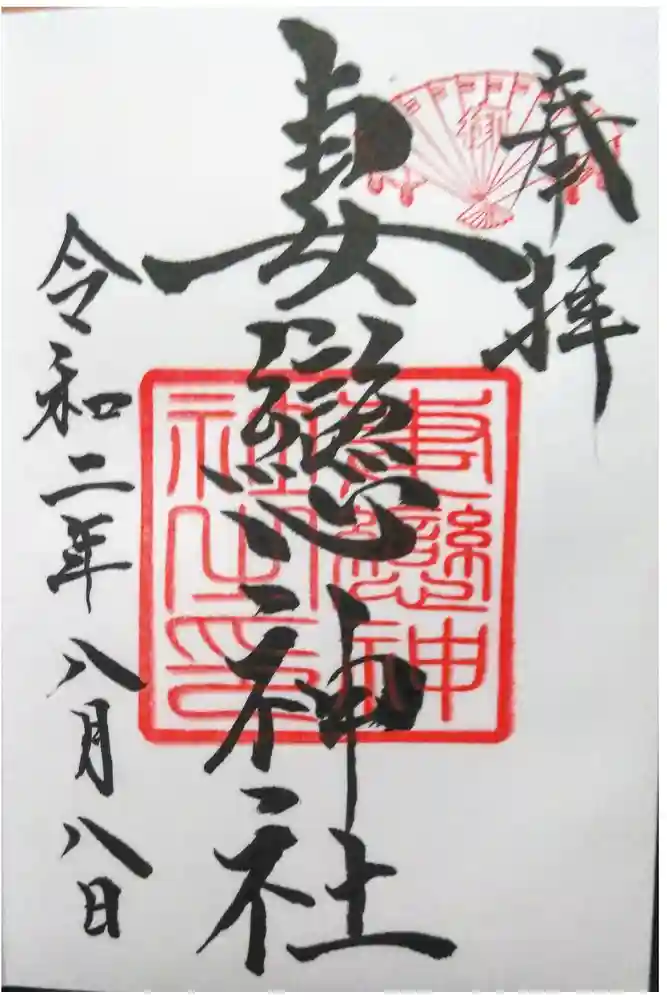 奉拝
妻戀神社
妻戀神
社之印
令和二年八月八日